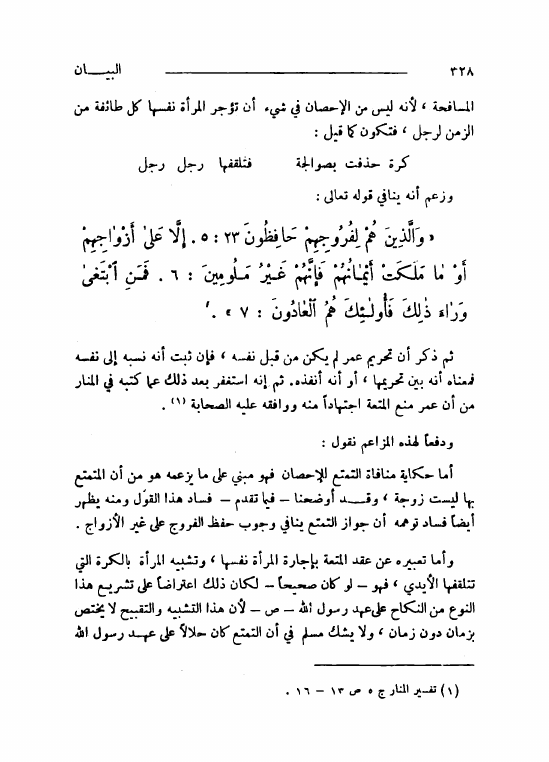 ٣٢٨ البيـــان
المسافحة ، لأنه ليس من الإحصان في شيء أن تؤجر المرأة نفسها كل طائفة من
الزمن لرجل ، فتكون كما قيل :
كرة حذفت بصوالجة فتلقفها رجل رجل
وزعم أنه ينافي قوله تعالى :
« وَالَّذِينَ هُمْ لِفُرُوجِهِمْ حَافِظُونَ ٢٣ : ٥ . إِلَّا عَلىٰ أَزْوٰاجِهِمْ
أَوْ مٰا مَلَكَتْ أَيْمٰانُهُمْ فَإِنَّهُمْ غَيْرُ مَلُومِينَ : ٦ . فَمَنِ ابْتَغىٰ
وَرٰاءَ ذٰلِكَ فَأُولٰئِكَ هُمُ الْعٰادُونَ : ٧ » .
ثم ذكر أن تحريم عمر لم يكن من قبل نفسه ، فإن ثبت أنه نسبه إلى نفسه
فمعناه أنه بين تحريمها ، أو أنه أنفذه. ثم إنه استغفر بعد ذلك عما كتبه في المنار
من أن عمر منع المتعة اجتهاداً منه ووافقه عليه الصحابة (١) .
ودفعاً لهذه المزاعم نقول :
أما حكاية منافاة التمتع للإحصان فهو مبني على ما يزعمه هو من أن المتمتع
بها ليست زوجة ، وقـــد أوضحنا – فيما تقدم – فساد هذا القول ومنه يظهر
أيضاً فساد توهمه أن جواز التمتع ينافي وجوب حفظ الفروج على غير الأزواج .
وأما تعبيره عن عقد المتعة بإجارة المرأة نفسها ، وتشبيه المرأة بالكرة التي
تتلقفها الأيدي ، فهو – لو كان صحيحاً – لكان ذلك اعتراضاً على تشريع هذا
النوع من النكاح على عهد رسول الله – ص – لأن هذا التشبيه والتقبيح لا يختص
بزمان دون زمان ، ولا يشك مسلم في أن التمتع كان حلالاً على عهـد رسول الله
(١) تفسير المنار ج ٥ ص ١٣ – ١٦ .